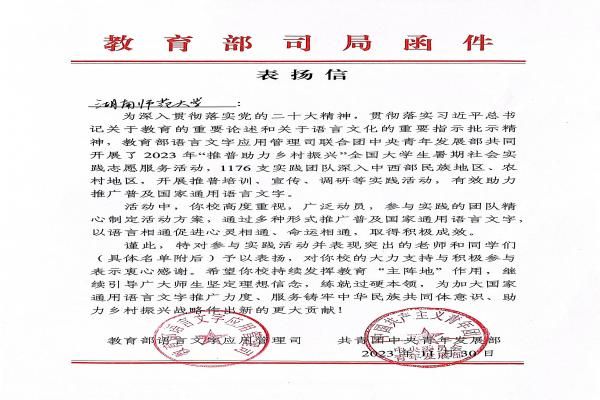 教育部司局函件
表扬信
湖南师范大学：
为深入贯彻落实党的二十大精神，贯彻落实习近平总书
记关于教育的重要论述和关于语言文化的重要指示批示精
神，教育部语言文字应用管理司联合团中央青年发展部共同
开展了2023年“推普助力乡村振兴”全国大学生暑期社会实
践志愿服务活动，1176支实践团队深入中西部民族地区、农
村地区，开展推普培训、宣传、调研等实践活动，有效助力
推广普及国家通用语言文字。
活动中，你校高度重视，广泛动员，参与实践的团队精
心制定活动方案，通过多种形式推广普及国家通用语言文字，
以语言相通促进心灵相通、命运相通，取得积极成效。
谨此，特对参与实践活动并表现突出的老师和同学们
（具体名单附后）予以表扬，对你校的大力支持与积极参与
表示衷心感谢。希望你校持续发挥教育“主阵地”作用，继
续引导广大师生坚定理想信念，练就过硬本领，为加大国家
通用语言文字推广力度、服务铸牢中华民族共同体意识、助
力乡村振兴战略作出新的更大贡献！
教育部语言文字应用管理司 共青团中央青年发展部
2023年11月30日